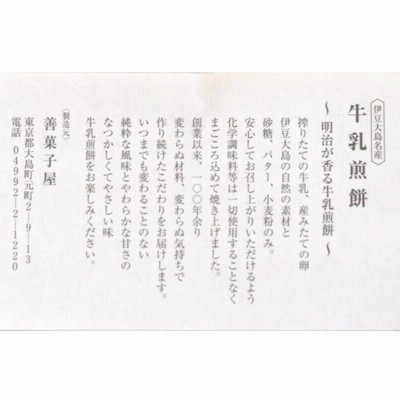 伊豆大島名産
牛乳煎餅
～明治が香る牛乳煎餅～
搾りたての牛乳、産みたての卵
伊豆大島の自然の素材と
砂糖、バター、小麦粉のみ。
安心してお召し上がりいただけるよう
化学調味料等は一切使用することなく
まごころ込めて焼き上げました。
創業以来、一〇〇年余り
変わらぬ材料、変わらぬ気持ちで
作り続けたこだわりをお届けします。
いつまでも変わることのない
純粋な風味とやわらかな甘さの
なつかしくてやさしい味
牛乳煎餅をお楽しみください。
（製造元）
善菓子屋
東京都大島町元町2―9―13
電話 04992―2―1220